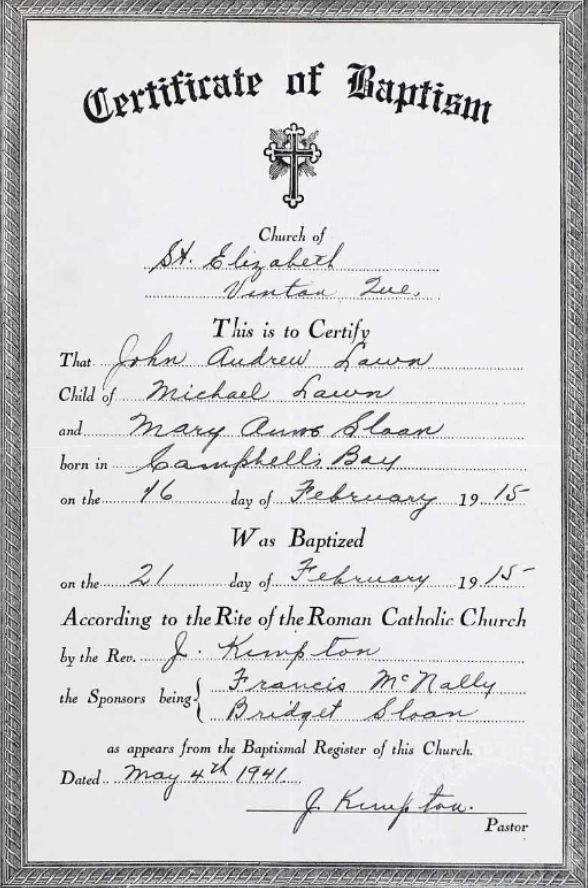 Certificate of Baptism
Church of
St. Elizabeth
Vinton Que.
This is to Certify
That John Andrew Lawn
Child of Michael Lawn
and Mary Anne Sloan
born in Campbell's Bay
on the 16 day of February 19 15
Was Baptized
on the 21 day of February 19 15
According to the Rite of the Roman Catholic Church
by the Rev. J. Kimpton
the Sponsors being { Francis McNally
Bridget Sloan
as appears from the Baptismal Register of this Church.
Dated May 4th 1941
J. Kimpton.
Pastor